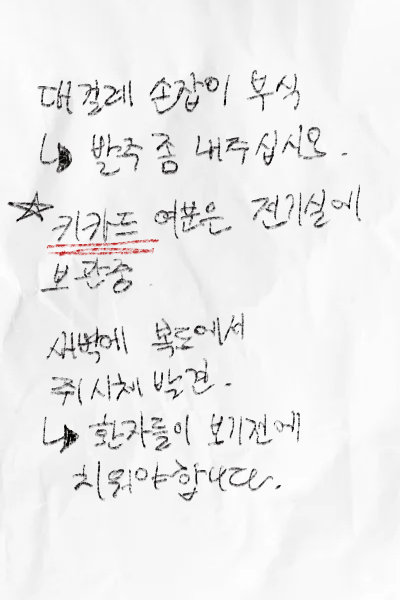 대걸레 손잡이 부식
↳ 발주 좀 내주십시오.
☆키카드 여분은 전기실에
보관중
새벽에 복도에서
쥐 시체 발견.
↳ 환자들이 보기전에
치워야 합니다.